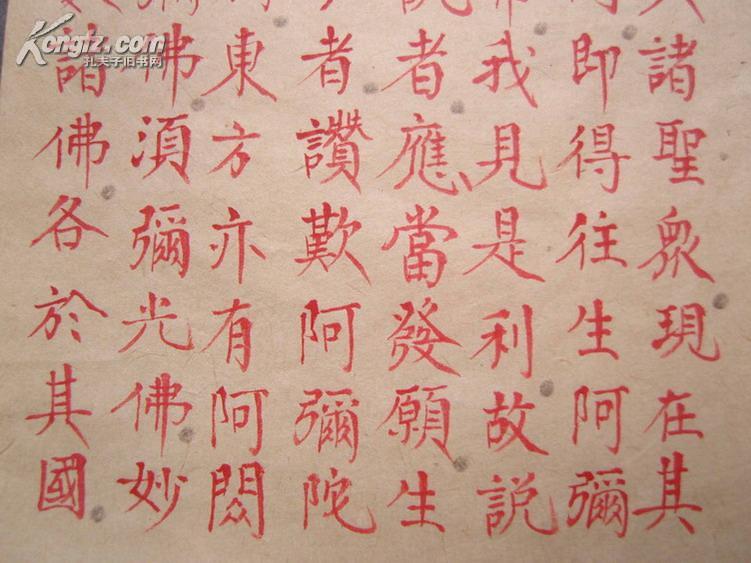 諸聖衆現在其
即得往生阿彌
我見是利故説
者應當發願生
者讚歎阿彌陀
東方亦有阿閦
佛須彌光佛妙
諸佛各於其國
Kongfz.com
孔夫子旧书网